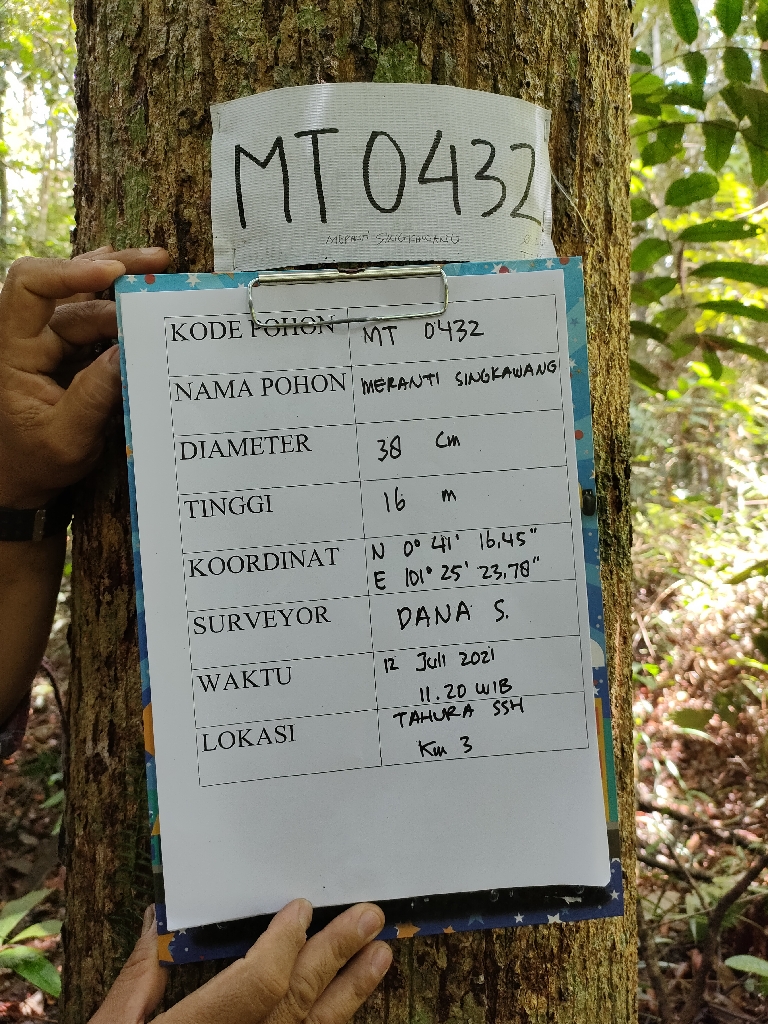 MT 0432
MERANTI SINGKAWANG
KODE POHON MT 0432
NAMA POHON MERANTI SINGKAWANG
DIAMETER 38 cm
TINGGI 16 m
KOORDINAT N 0° 41' 16,45"
E 101° 25' 23,78"
SURVEYOR DANA S.
WAKTU 12 Juli 2021
11.20 WIB
LOKASI TAHURA SSH
Km 3